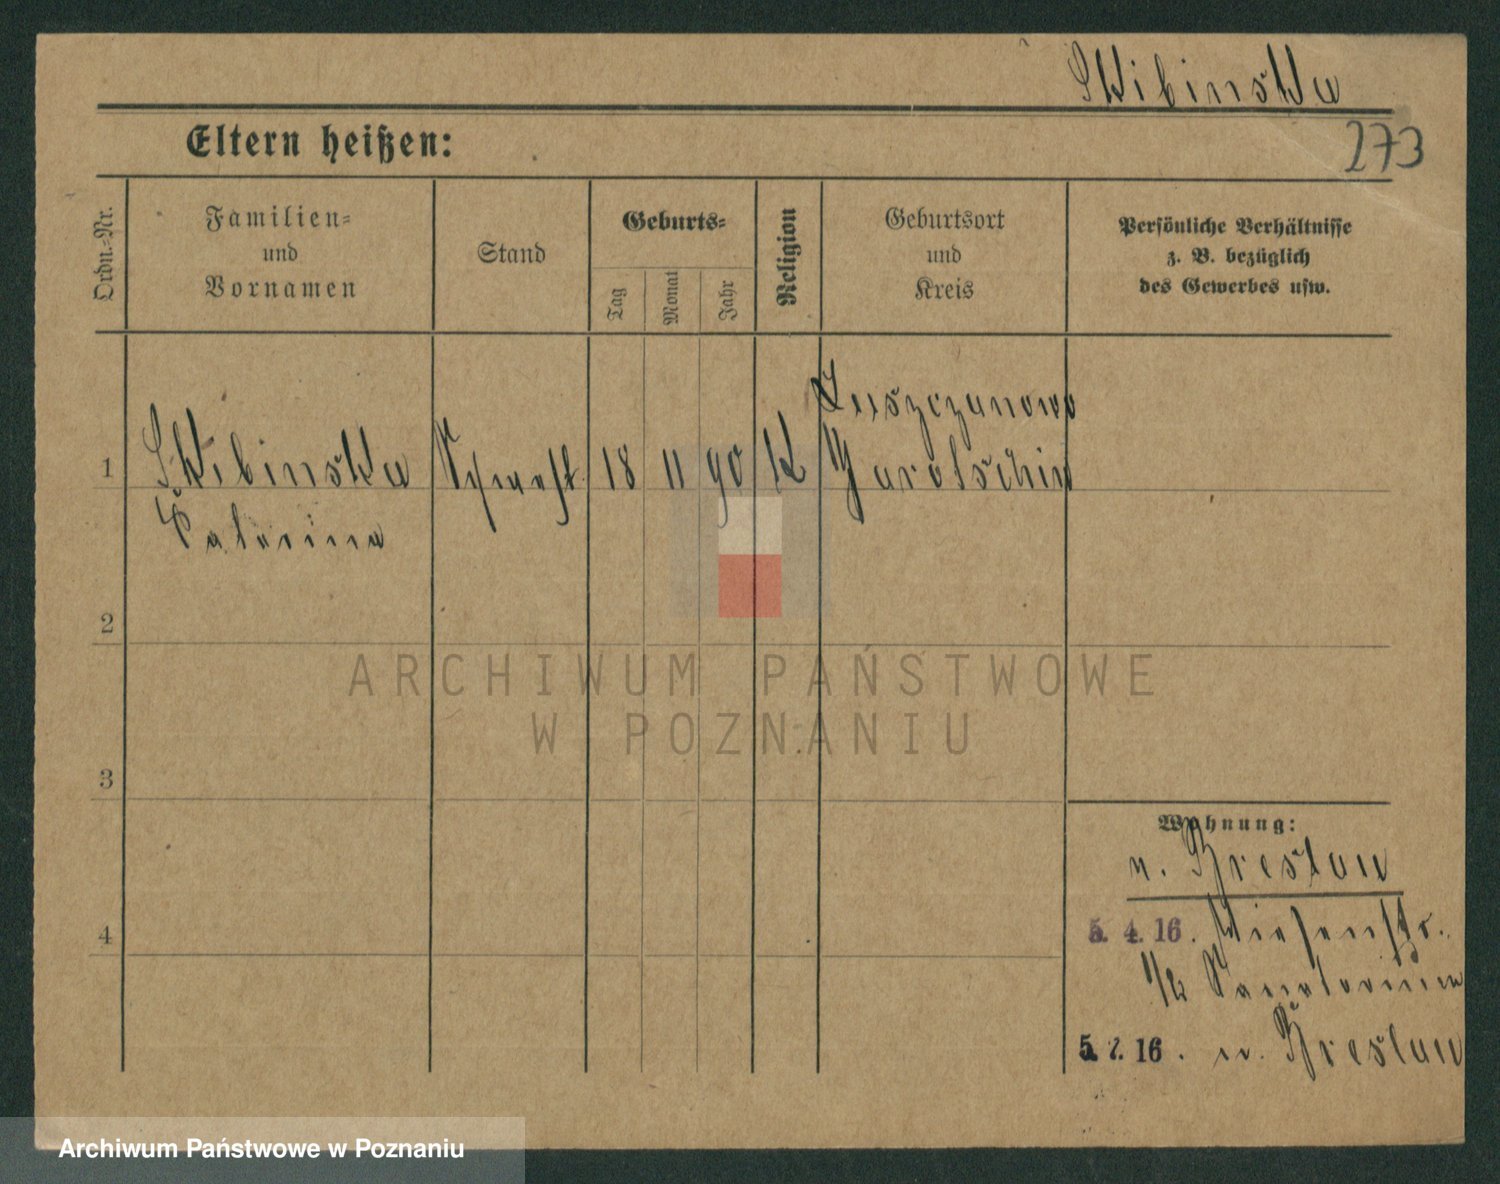 Skibinska
273
Eltern heißen:
Ordn.-Nr.
Familien-
und
Vornamen
Stand
Geburts-
Tag
Monat
Jahr
Religion
Geburtsort
und
Kreis
Persönliche Verhältnisse
z. B. bezüglich
des Gewerbes usw.
Luszczanowo
1 Skibinska 18 11 90 K Jarotschin
Katarina
2
ARCHIWUM PAŃSTWOWE
W POZNANIU
3
Wohnung:
n. Breslau
5. 4. 16. Wiesenstr.
Sanatorium
5. 7. 16. n. Breslau
4
Archiwum Państwowe w Poznaniu